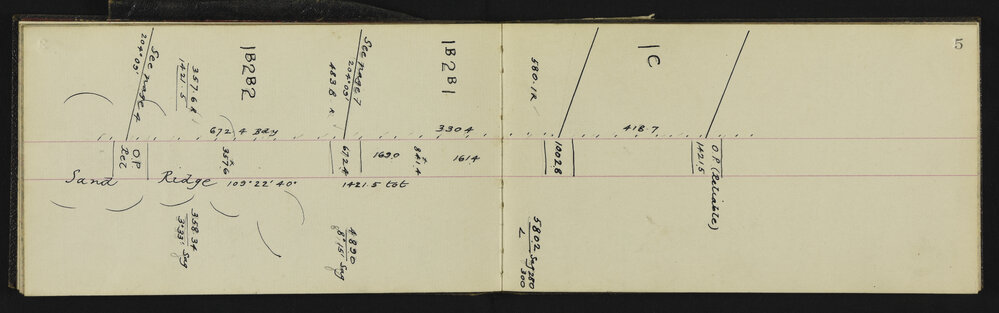 5
See page 4
204° 03'
357.68
1421.5
1B2B2
See page 7
204° 03'
483.8
1B2B1
580.1R
1C
672.4 Bdy
330.4
418.7
O.P.
Rel
357.6
672.4
169.0
841.4
161.4
1002.8
1421.5
O.P. (Reliable)
Sand Ridge 109° 22' 40" 1421.5 tot
358.34
3° 33' Sag
483.0
8° 15' Sag
580.2 Sag 280
300